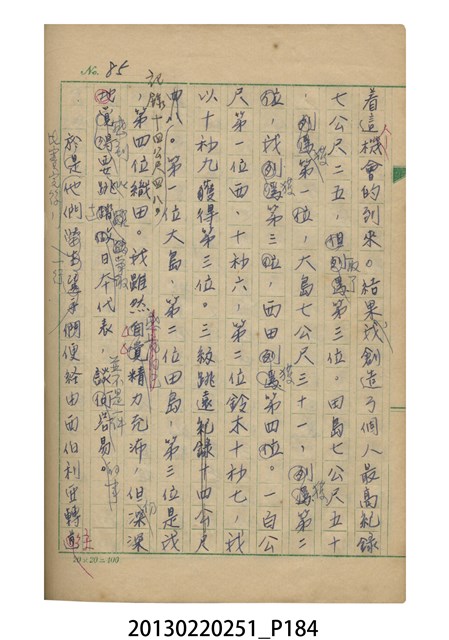 No. 85
着這機會的到來。結果我創造了個人最高紀錄
七公尺二五,但列為第三位。田島七公尺五十
,列為第一位,大島七公尺三十一,列為第二
位,我列為第三位,西田列為第四位。一百公
尺第一位西,十秒六,第二位鈴木十秒七,我
以十秒九獲得第三位。三級跳遠紀錄十四公尺
四八。第一位大島,第二位田島,第三位是我
記錄十四公尺四八。
,第四位織田。我雖然自覺精力充沛,但深深
地覺得要跳做日本代表,談何容易。
並不是一件
的事
於是他們選手們便經由西伯利亞轉
20×20=400
20130220251_P184